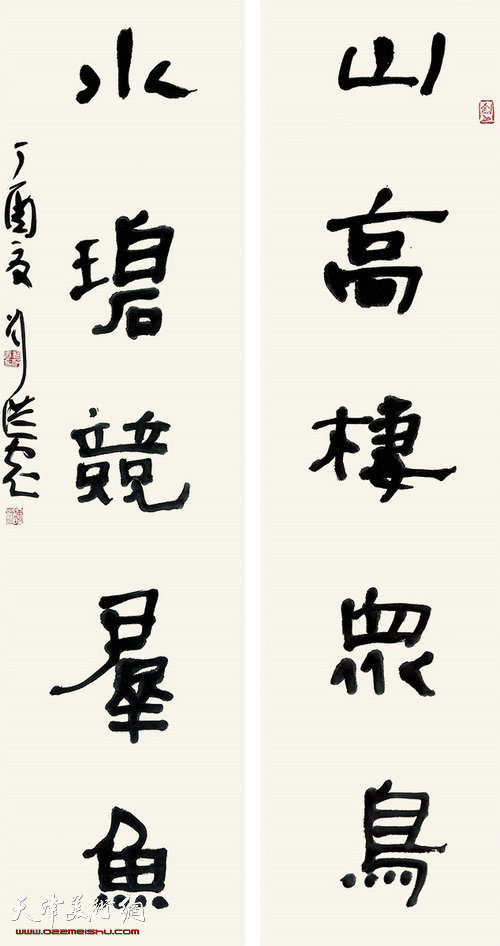 山高棲眾鳥
水碧競羣魚
丁酉夏
天津美術網
www.022meishu.com